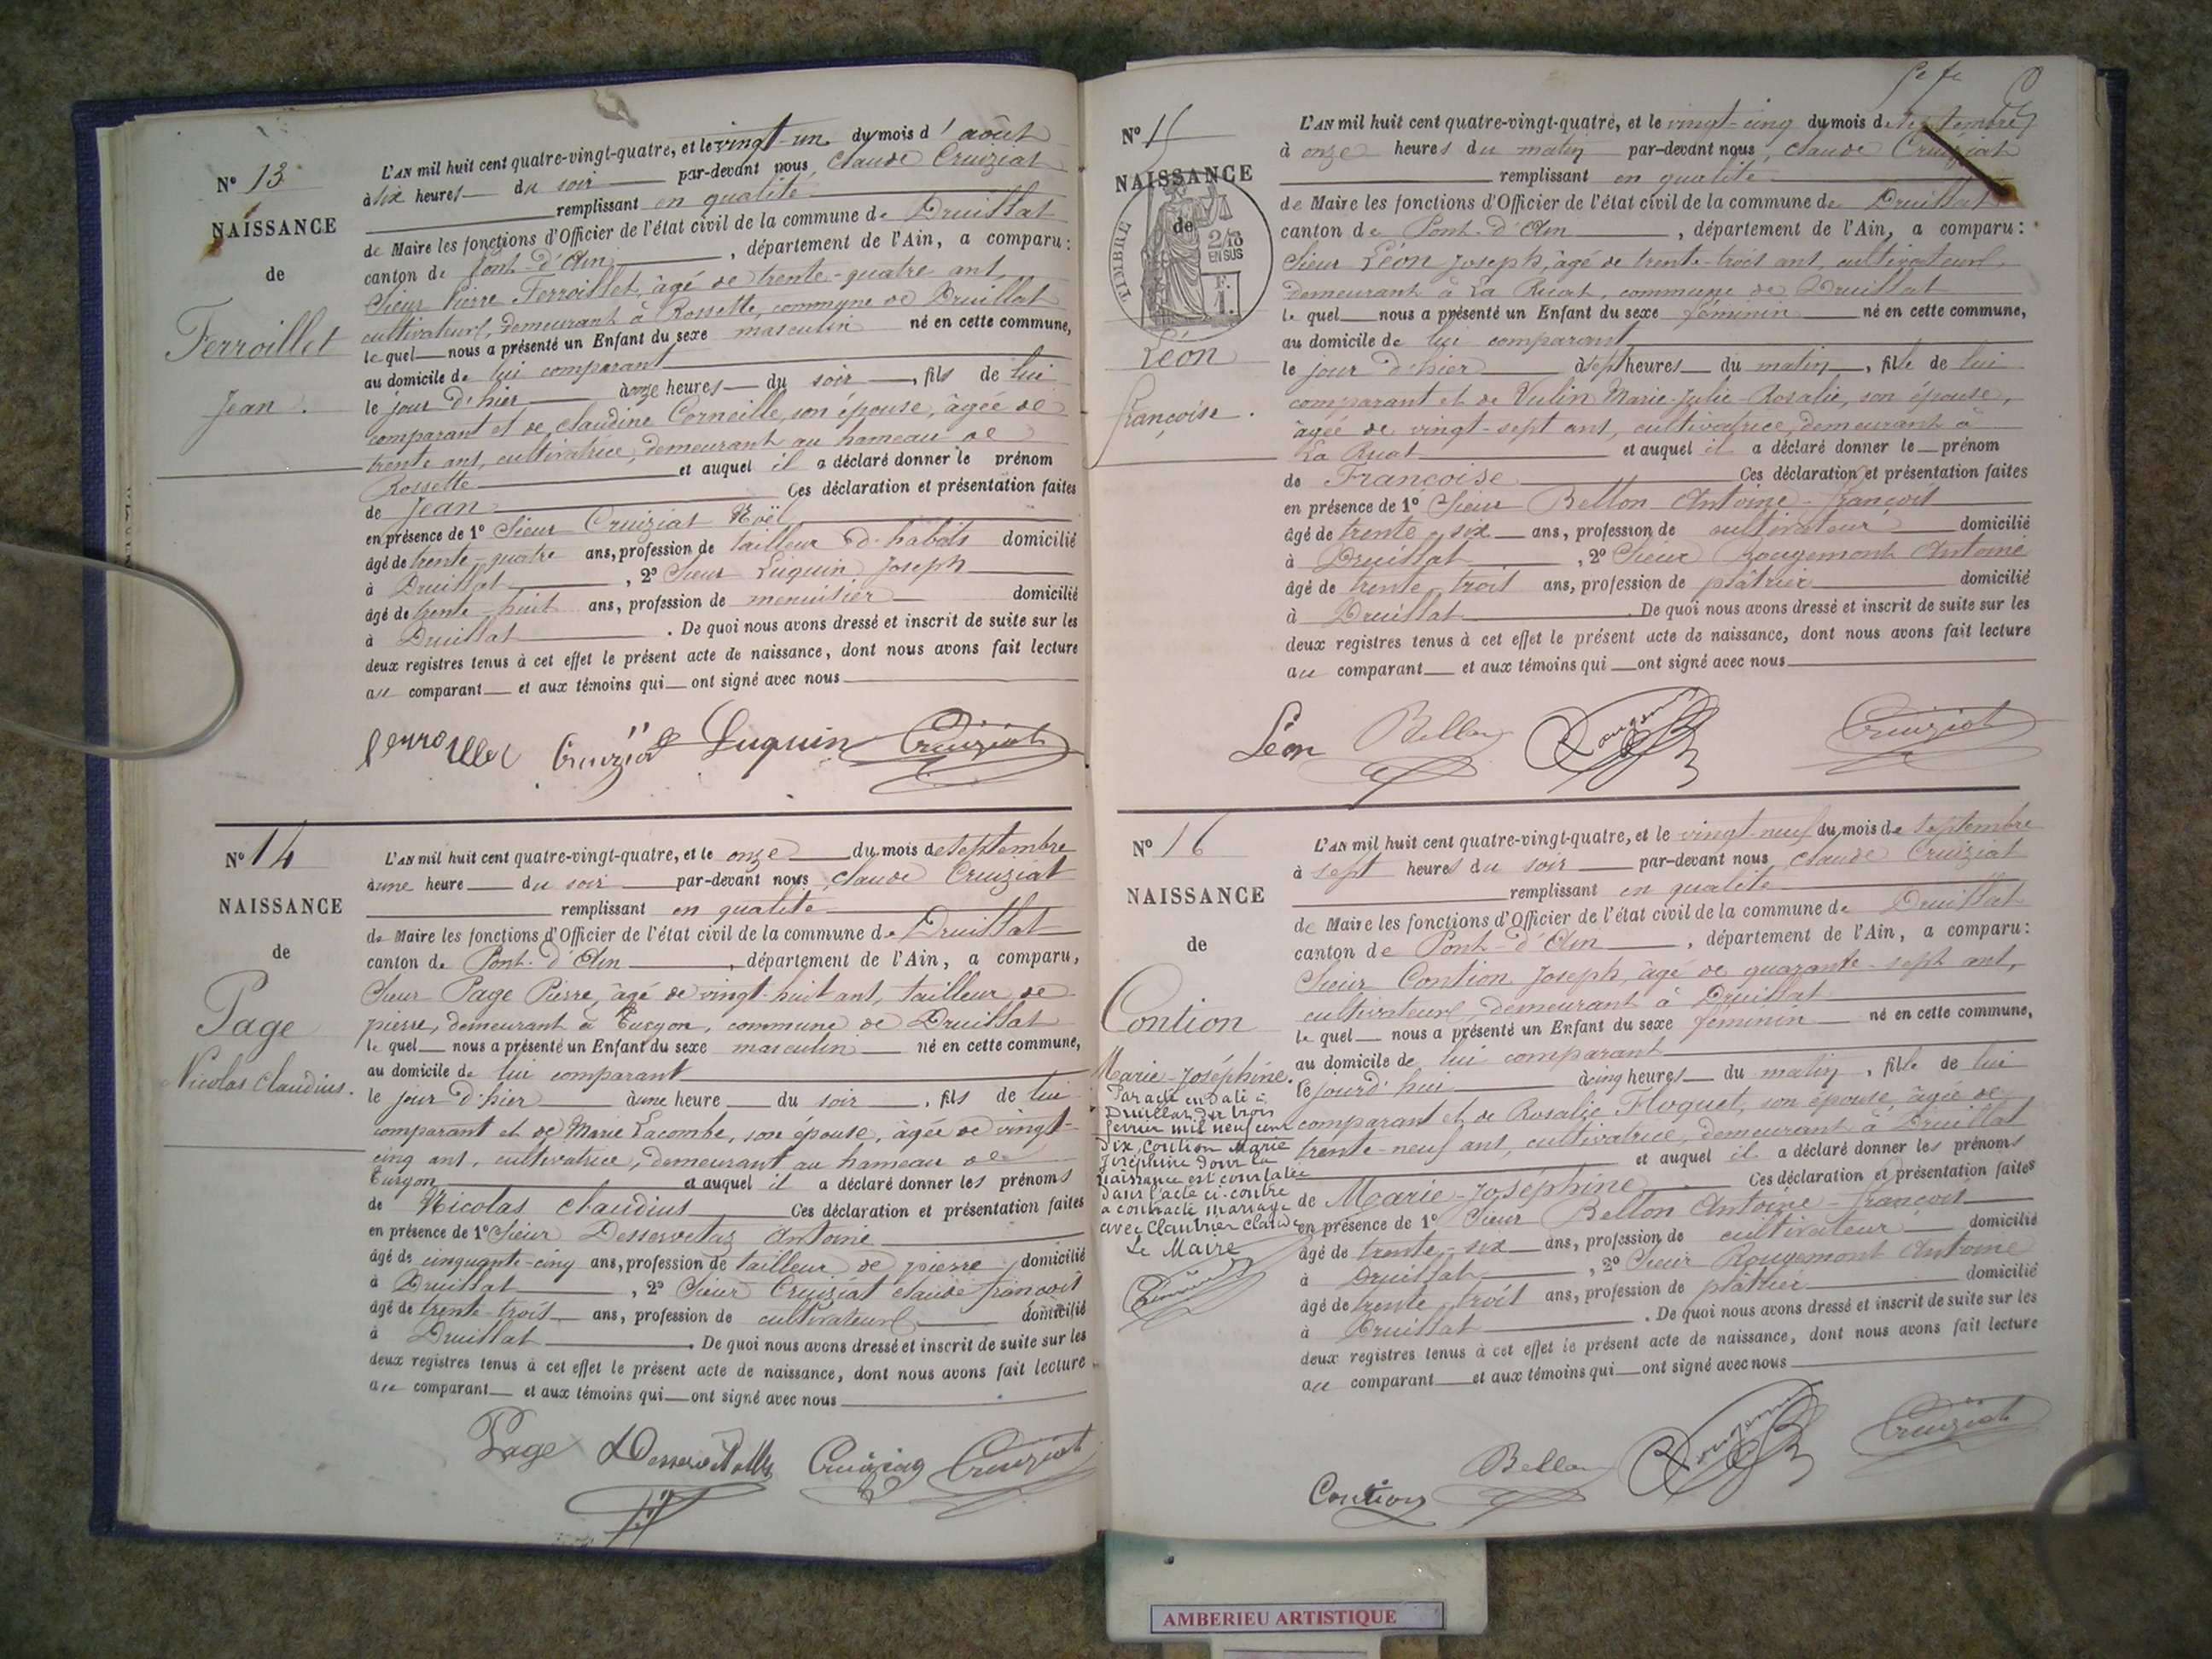 N° 13
NAISSANCE
de
Ferroillet
Jean.
L'AN mil huit cent quatre-vingt-quatre, et le vingt-un du mois d'août
à six heures du soir par-devant nous, Claude Cruiziat
remplissant en qualité
de Maire les fonctions d'Officier de l'état civil de la commune de Druillat
canton de Pont-d'Ain, département de l'Ain, a comparu:
Sieur Pierre Ferroillet, âgé de trente-quatre ans,
cultivateur, demeurant à Rossette, commune de Druillat
le quel nous a présenté un Enfant du sexe masculin né en cette commune,
au domicile de lui comparant
le jour d'hier à onze heures du soir, fils de lui
comparant et de Claudine Corneille, son épouse, âgée de
trente ans, cultivatrice, demeurant au hameau de
Rossette et auquel il a déclaré donner le prénom
de Jean Ces déclaration et présentation faites
en présence de 1° Sieur Cruiziat Noël
âgé de trente-quatre ans, profession de tailleur d'habits domicilié
à Druillat, 2° Sieur Luquin Joseph
âgé de trente-huit ans, profession de menuisier domicilié
à Druillat. De quoi nous avons dressé et inscrit de suite sur les
deux registres tenus à cet effet le présent acte de naissance, dont nous avons fait lecture
au comparant et aux témoins qui ont signé avec nous
Ferroillet Cruiziat Luquin Cruiziat
N° 14
NAISSANCE
de
Page
Nicolas Claudius.
L'AN mil huit cent quatre-vingt-quatre, et le onze du mois de septembre
à une heure du soir par-devant nous Claude Cruiziat
remplissant en qualité
de Maire les fonctions d'Officier de l'état civil de la commune de Druillat
canton de Pont-d'Ain, département de l'Ain, a comparu,
Sieur Page Pierre, âgé de vingt-huit ans, tailleur de
pierre, demeurant à Turgon, commune de Druillat
le quel nous a présenté un Enfant du sexe masculin né en cette commune,
au domicile de lui comparant
le jour d'hier à une heure du soir, fils de lui
comparant et de Marie Lacombe, son épouse, âgée de vingt-
cinq ans, cultivatrice, demeurant au hameau de
Turgon et auquel il a déclaré donner les prénoms
de Nicolas Claudius Ces déclaration et présentation faites
en présence de 1° Sieur Desservetaz Antoine
âgé de cinquante-cinq ans, profession de tailleur de pierre domicilié
à Druillat, 2° Sieur Cruiziat Claude François
âgé de trente-trois ans, profession de cultivateur domicilié
à Druillat. De quoi nous avons dressé et inscrit de suite sur les
deux registres tenus à cet effet le présent acte de naissance, dont nous avons fait lecture
au comparant et aux témoins qui ont signé avec nous
Page Cruiziat Cruiziat
N° 15
NAISSANCE
de
TIMBRE
2/10
EN SUS
F.
1.
Léon
Françoise.
L'AN mil huit cent quatre-vingt-quatre, et le vingt-cinq du mois de septembre
à onze heures du matin par-devant nous, Claude Cruiziat
remplissant en qualité
de Maire les fonctions d'Officier de l'état civil de la commune de Druillat
canton de Pont-d'Ain, département de l'Ain, a comparu:
Sieur Léon Joseph, âgé de trente-trois ans, cultivateur,
demeurant à La Ruat, commune de Druillat
le quel nous a présenté un Enfant du sexe féminin né en cette commune,
au domicile de lui comparant
le jour d'hier à sept heures du matin, fille de lui
comparant et de Vulin Marie-Julie-Rosalie, son épouse,
âgée de vingt-sept ans, cultivatrice, demeurant à
La Ruat et auquel il a déclaré donner le prénom
de Françoise Ces déclaration et présentation faites
en présence de 1° Sieur Bellon Antoine-François
âgé de trente-six ans, profession de cultivateur domicilié
à Druillat, 2° Sieur Rougemont Antoine
âgé de trente-trois ans, profession de plâtrier domicilié
à Druillat. De quoi nous avons dressé et inscrit de suite sur les
deux registres tenus à cet effet le présent acte de naissance, dont nous avons fait lecture
au comparant et aux témoins qui ont signé avec nous
Léon Bellon Rougemont Cruiziat
N° 16
NAISSANCE
de
Contion
Marie-Joséphine.
Par acte en date à
Druillat du trois
février mil neuf cent
dix, Contion Marie
Joséphine dont la
naissance est constatée
dans l'acte ci-contre
a contracté mariage
avec Claude
Le Maire
L'AN mil huit cent quatre-vingt-quatre, et le vingt-neuf du mois de septembre
à sept heures du soir par-devant nous, Claude Cruiziat
remplissant en qualité
de Maire les fonctions d'Officier de l'état civil de la commune de Druillat
canton de Pont-d'Ain, département de l'Ain, a comparu:
Sieur Contion Joseph, âgé de quarante-sept ans,
cultivateur, demeurant à Druillat
le quel nous a présenté un Enfant du sexe féminin né en cette commune,
au domicile de lui comparant
le jourd'hui à cinq heures du matin, fille de lui
comparant et de Rosalie Floquet, son épouse, âgée de
trente-neuf ans, cultivatrice, demeurant à Druillat
et auquel il a déclaré donner les prénoms
de Marie-Joséphine Ces déclaration et présentation faites
en présence de 1° Sieur Bellon Antoine-François
âgé de trente-six ans, profession de cultivateur domicilié
à Druillat, 2° Sieur Rougemont Antoine
âgé de trente-trois ans, profession de plâtrier domicilié
à Druillat. De quoi nous avons dressé et inscrit de suite sur les
deux registres tenus à cet effet le présent acte de naissance, dont nous avons fait lecture
au comparant et aux témoins qui ont signé avec nous
Contion Bellon Rougemont Cruiziat
AMBERIEU ARTISTIQUE